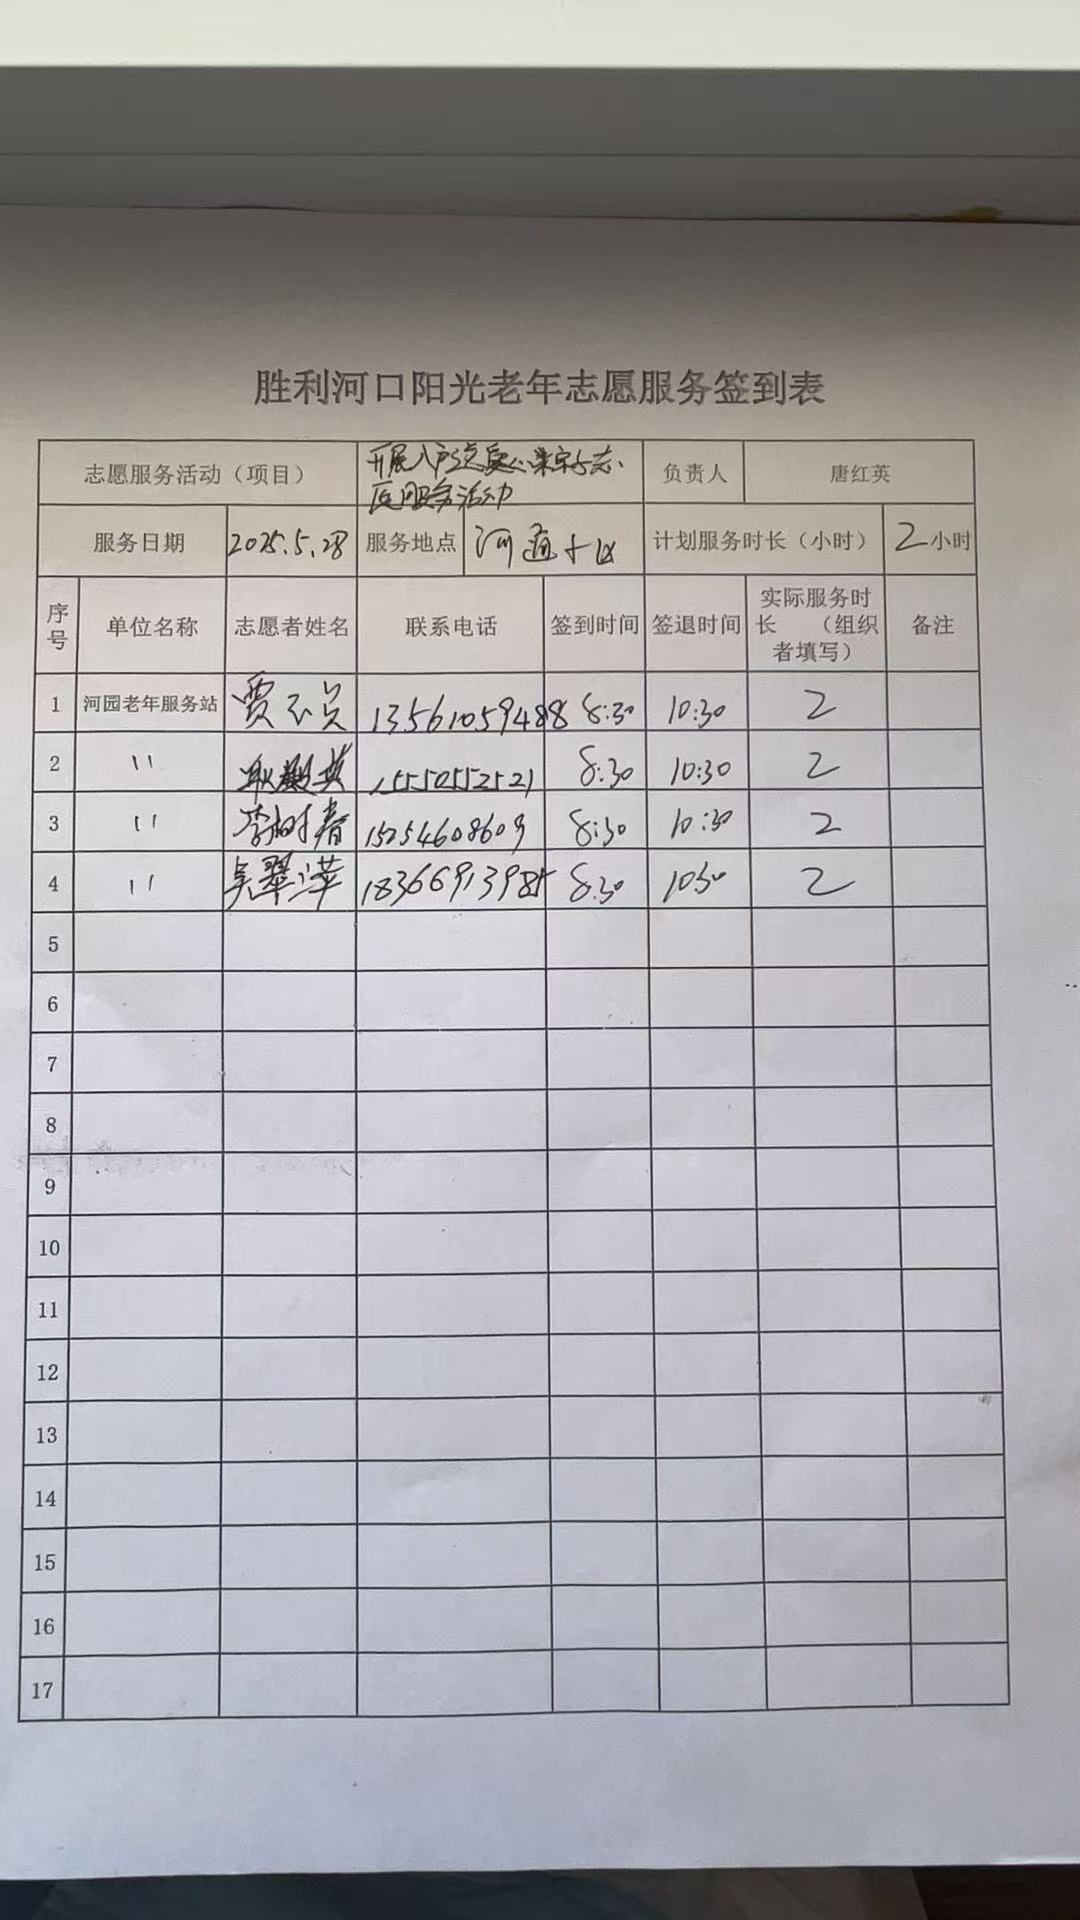 胜利河口阳光老年志愿服务签到表
志愿服务活动（项目） 开展入户 服务活动 负责人 唐红英
服务日期 2025.5.28 服务地点 河 小区 计划服务时长（小时） 2小时
序号 单位名称 志愿者姓名 联系电话 签到时间 签退时间 实际服务时长 （组织者填写） 备注
1 河园老年服务站 贾 13561059488 8:30 10:30 2
2 〃 耿 英 15550552521 8:30 10:30 2
3 〃 李树春 15254608609 8:30 10:30 2
4 〃 吴翠萍 18366913985 8:30 10:30 2
5
6
7
8
9
10
11
12
13
14
15
16
17